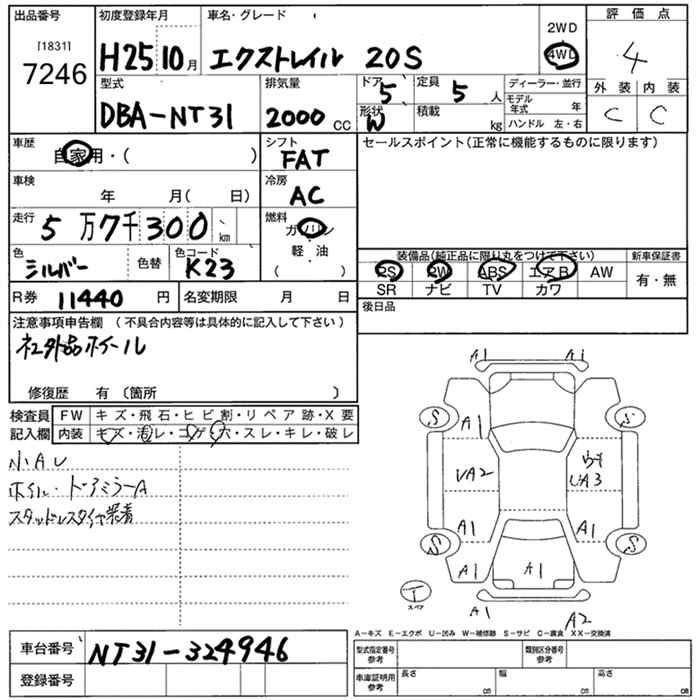 出品番号 初度登録年月 車名・グレード 2WD 評価点
[1831]
7246
H25 10月 エクストレイル 20S 4WD 4
型式 排気量 ドア 5 定員 5人 ディーラー・並行 外装 内装
DBA-NT31 2000CC 形状 W 積載 kg モデル年式 年 C C
ハンドル 左・右
車歴 シフト セールスポイント(正常に機能するものに限ります)
自家用・( ) FAT
車検 冷房
年 月( 日) AC
走行 5万7千300km 燃料
ガソリン
色 色替 色コード 軽・油
シルバー K23 ( )
装備品(純正品に限り丸をつけて下さい) 新車保証書
PS PW ABS エアB AW 有・無
SR ナビ TV カワ
R券 11440円 名変期限 月 日 後日品
注意事項申告欄 (不具合内容等は具体的に記入して下さい)
社外品ホイール
修復歴 有〔箇所 〕
検査員 FW キズ・飛石・ヒビ割・リペア跡・X要
記入欄 内装 キズ・濁レ・コゲ・穴・スレ・キレ・破レ
小AU
ホイル・ドアミラーA
スタッドレスタイヤ装着
A1 A1
S S
A1
UA2 UA3
A1 A1
S S
A1 A1 A1
T
スペア
A1 A2
A-キズ E-エクボ U-凹み W-補修跡 S-サビ C-腐食 XX-交換済
車台番号 NT31-324946
型式指定番号 参考 類別区分番号 参考
登録番号
車庫証明用 参考 長さ cm 幅 cm 高さ cm